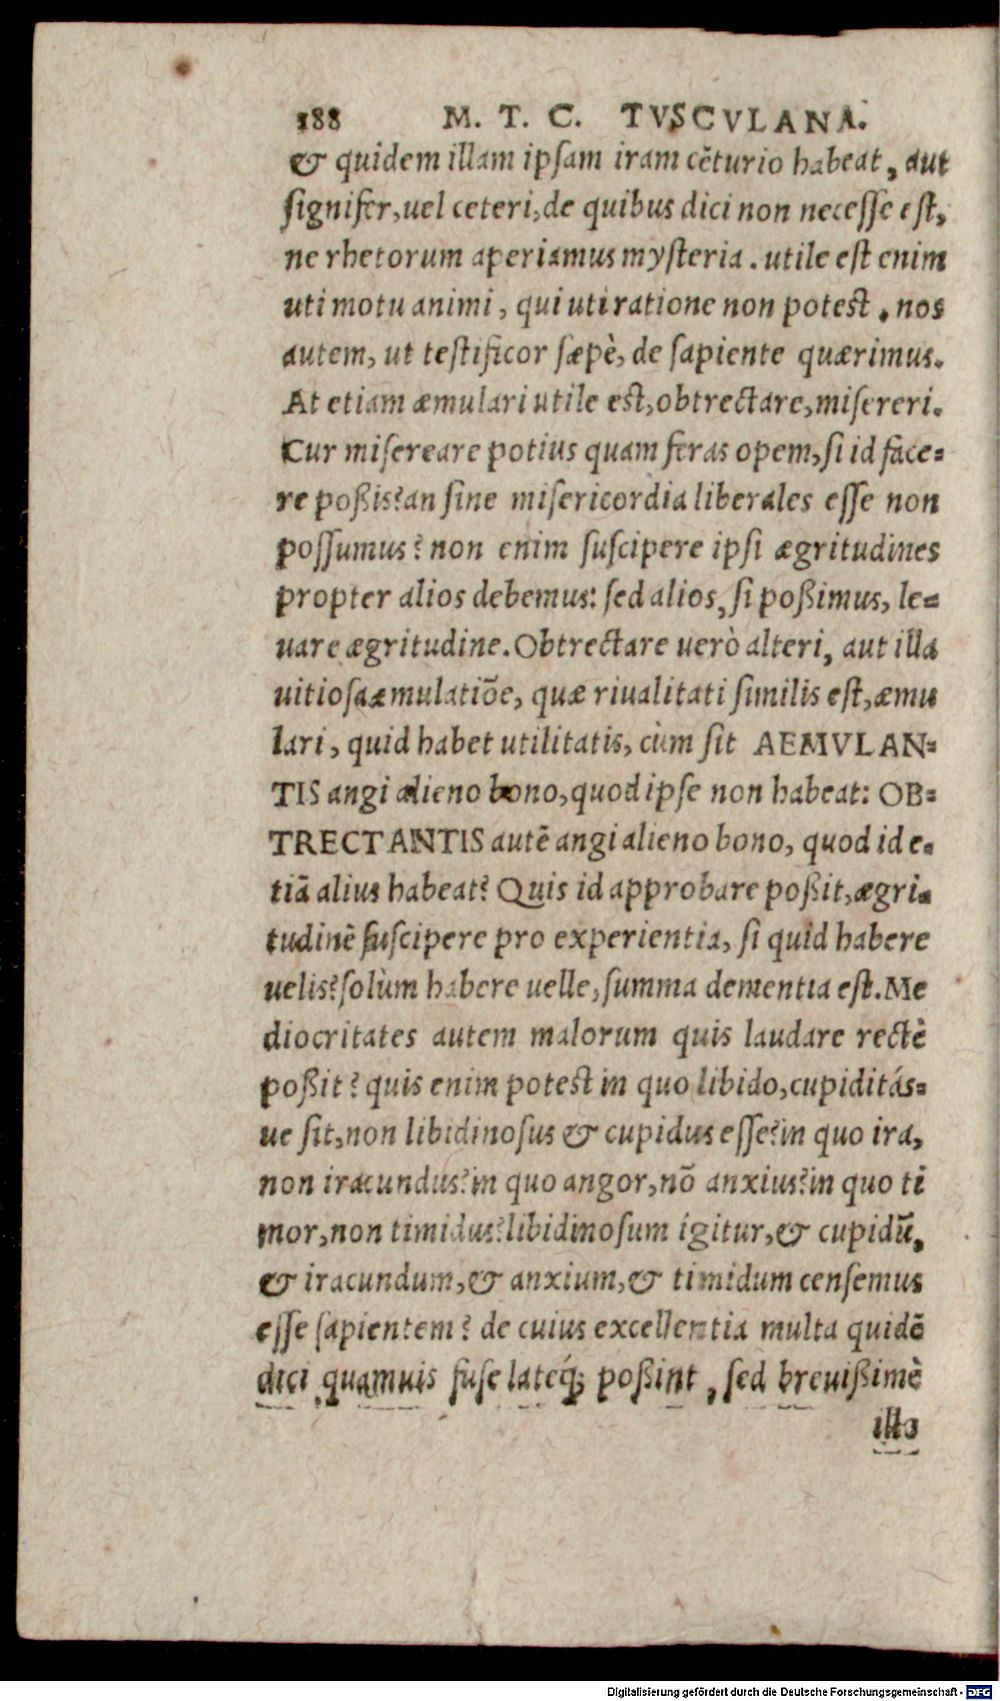 188 M. T. C. TVSCVLANA.
& quidem illam ipsam iram cẽturio habeat, aut
signifer, uel ceteri, de quibus dici non necesse est,
ne rhetorum aperiamus mysteria. utile est enim
uti motu animi, qui uti ratione non potest. nos
autem, ut testificor sæpè, de sapiente quærimus.
At etiam æmulari utile est, obtrectare, misereri.
Cur misereare potius quam feras opem, si id face=
re poßis? an sine misericordia liberales esse non
possumus? non enim suscipere ipsi ægritudines
propter alios debemus: sed alios, si poßimus, le=
uare ægritudine. Obtrectare uerò alteri, aut illa
uitiosa æmulatiõe, quæ riualitati similis est, æmu
lari, quid habet utilitatis, cùm sit AEMVLAN=
TIS angi alieno bono, quod ipse non habeat: OB=
TRECTANTIS autẽ angi alieno bono, quod id e=
tiã alius habeat? Quis id approbare poßit, ægri=
tudinẽ suscipere pro experientia, si quid habere
uelis? solùm habere uelle, summa dementia est. Me
diocritates autem malorum quis laudare rectè
poßit? quis enim potest in quo libido, cupiditás=
ue sit, non libidinosus & cupidus esse? in quo ira,
non iracundus? in quo angor, nõ anxius? in quo ti
mor, non timidus? libidinosum igitur, & cupidũ,
& iracundum, & anxium, & timidum censemus
esse sapientem? de cuius excellentia multa quidẽ
dici quamuis fuse lateq́; poßint, sed breuißimè
illa
Digitalisierung gefördert durch die Deutsche Forschungsgemeinschaft - DFG